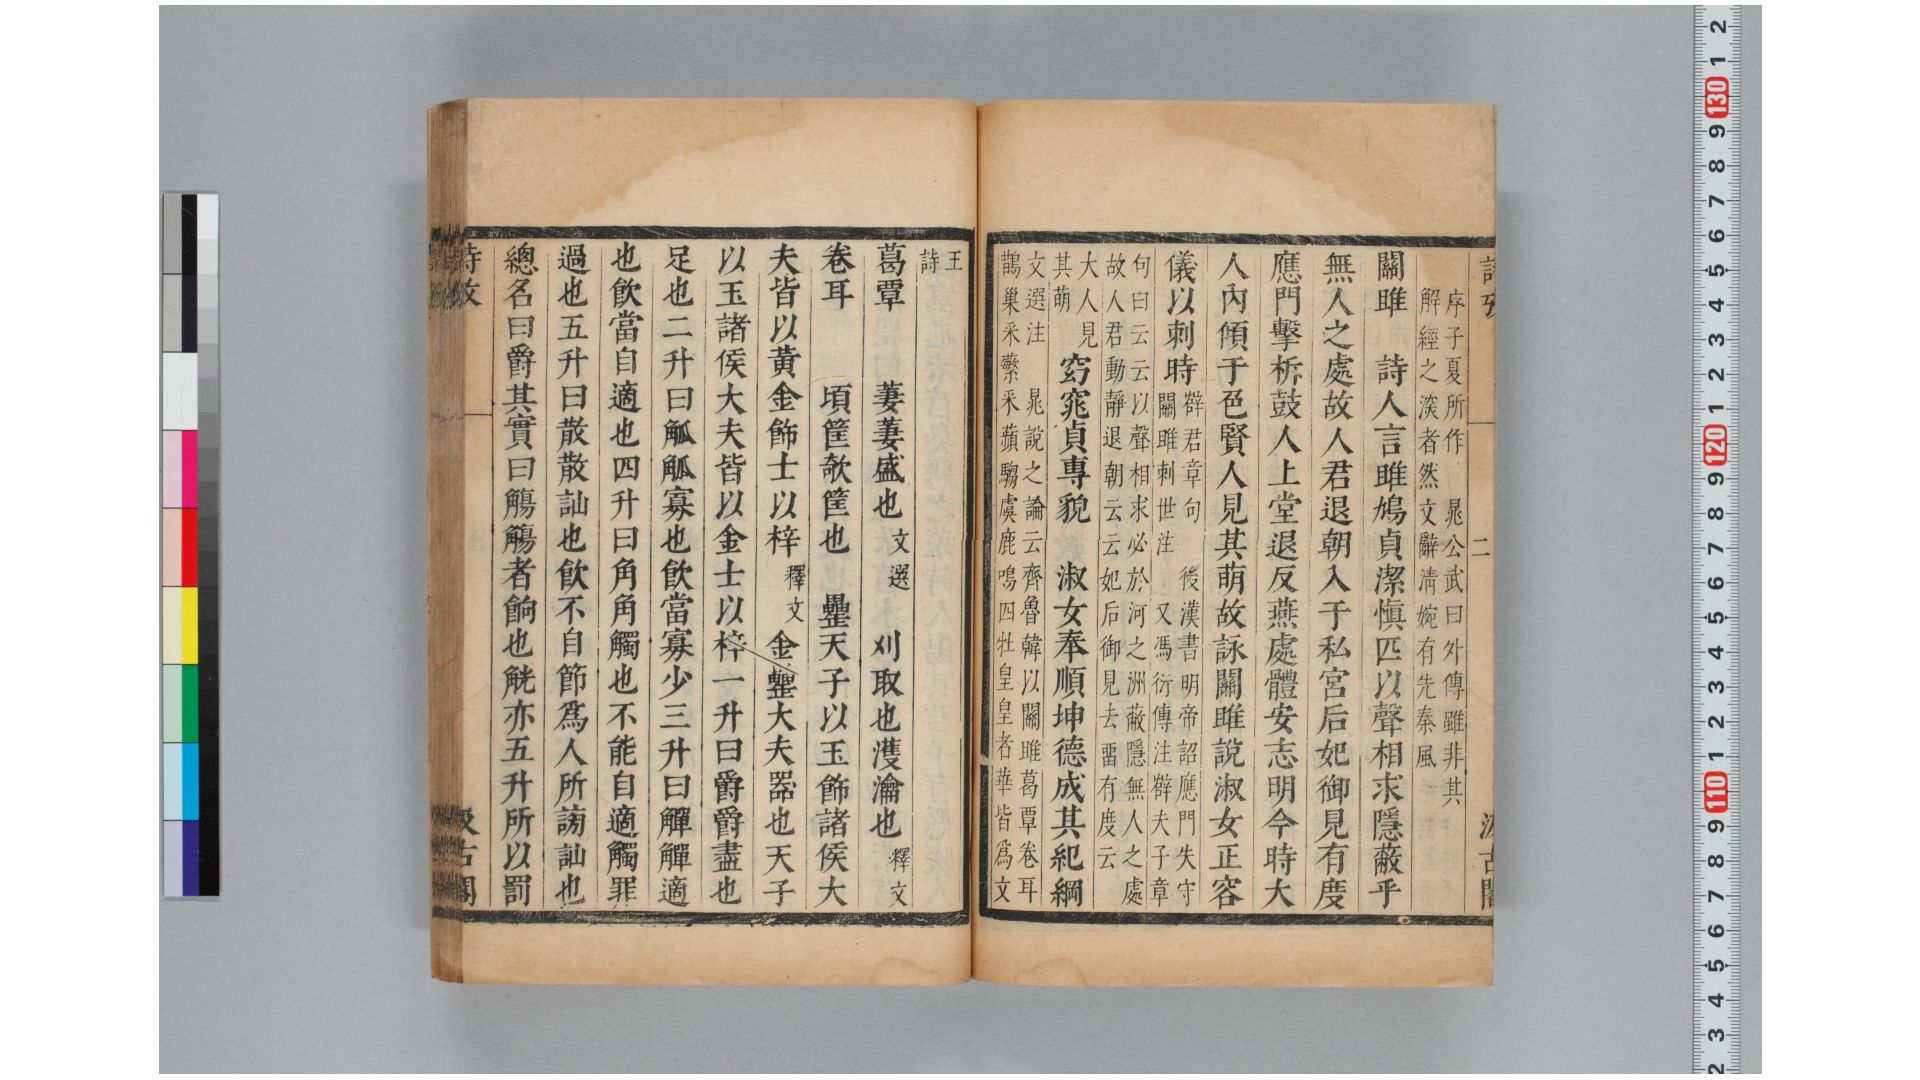 詩攷 二 汲古閣
序子夏所作 晁公武曰外傳雖非其
解經之深者然文辭清婉有先秦風
關雎 詩人言雎鳩貞潔慎匹以聲相求隱蔽乎
無人之處故人君退朝入于私宮后妃御見有度
應門擊柝鼓人上堂退反燕處體安志明今時大
人內傾于色賢人見其萌故詠關雎說淑女正容
儀以刺時 薛君章句 後漢書明帝詔應門失守
關雎刺世注 又馮衍傳注薛夫子章
句曰云云以聲相求必於河之洲蔽隱無人之處
故人君動靜退朝云云妃后御見去畱有度云
大人見
其萌 窈窕貞專貌 淑女奉順坤德成其紀綱
文選注 晁說之論云齊魯韓以關雎葛覃卷耳
鵲巢采蘩采蘋騶虞鹿鳴四牡皇皇者華皆爲文
王
詩
葛覃 萋萋盛也 文選 刈取也濩瀹也 釋文
卷耳 頃筐欹筐也 罍天子以玉飾諸侯大
夫皆以黃金飾士以梓 釋文 金罍大夫器也天子
以玉諸侯大夫皆以金士以梓一升曰爵爵盡也
足也二升曰觚觚寡也飮當寡少三升曰觶觶適
也飮當自適也四升曰角角觸也不能自適觸罪
過也五升曰散散訕也飮不自節爲人所謗訕也
總名曰爵其實曰觴觴者餉也觥亦五升所以罰
詩攷 汲古閣
2
1
130
9
8
7
6
5
4
3
2
1
120
9
8
7
6
5
4
3
2
1
110
9
8
7
6
5
4
3
2